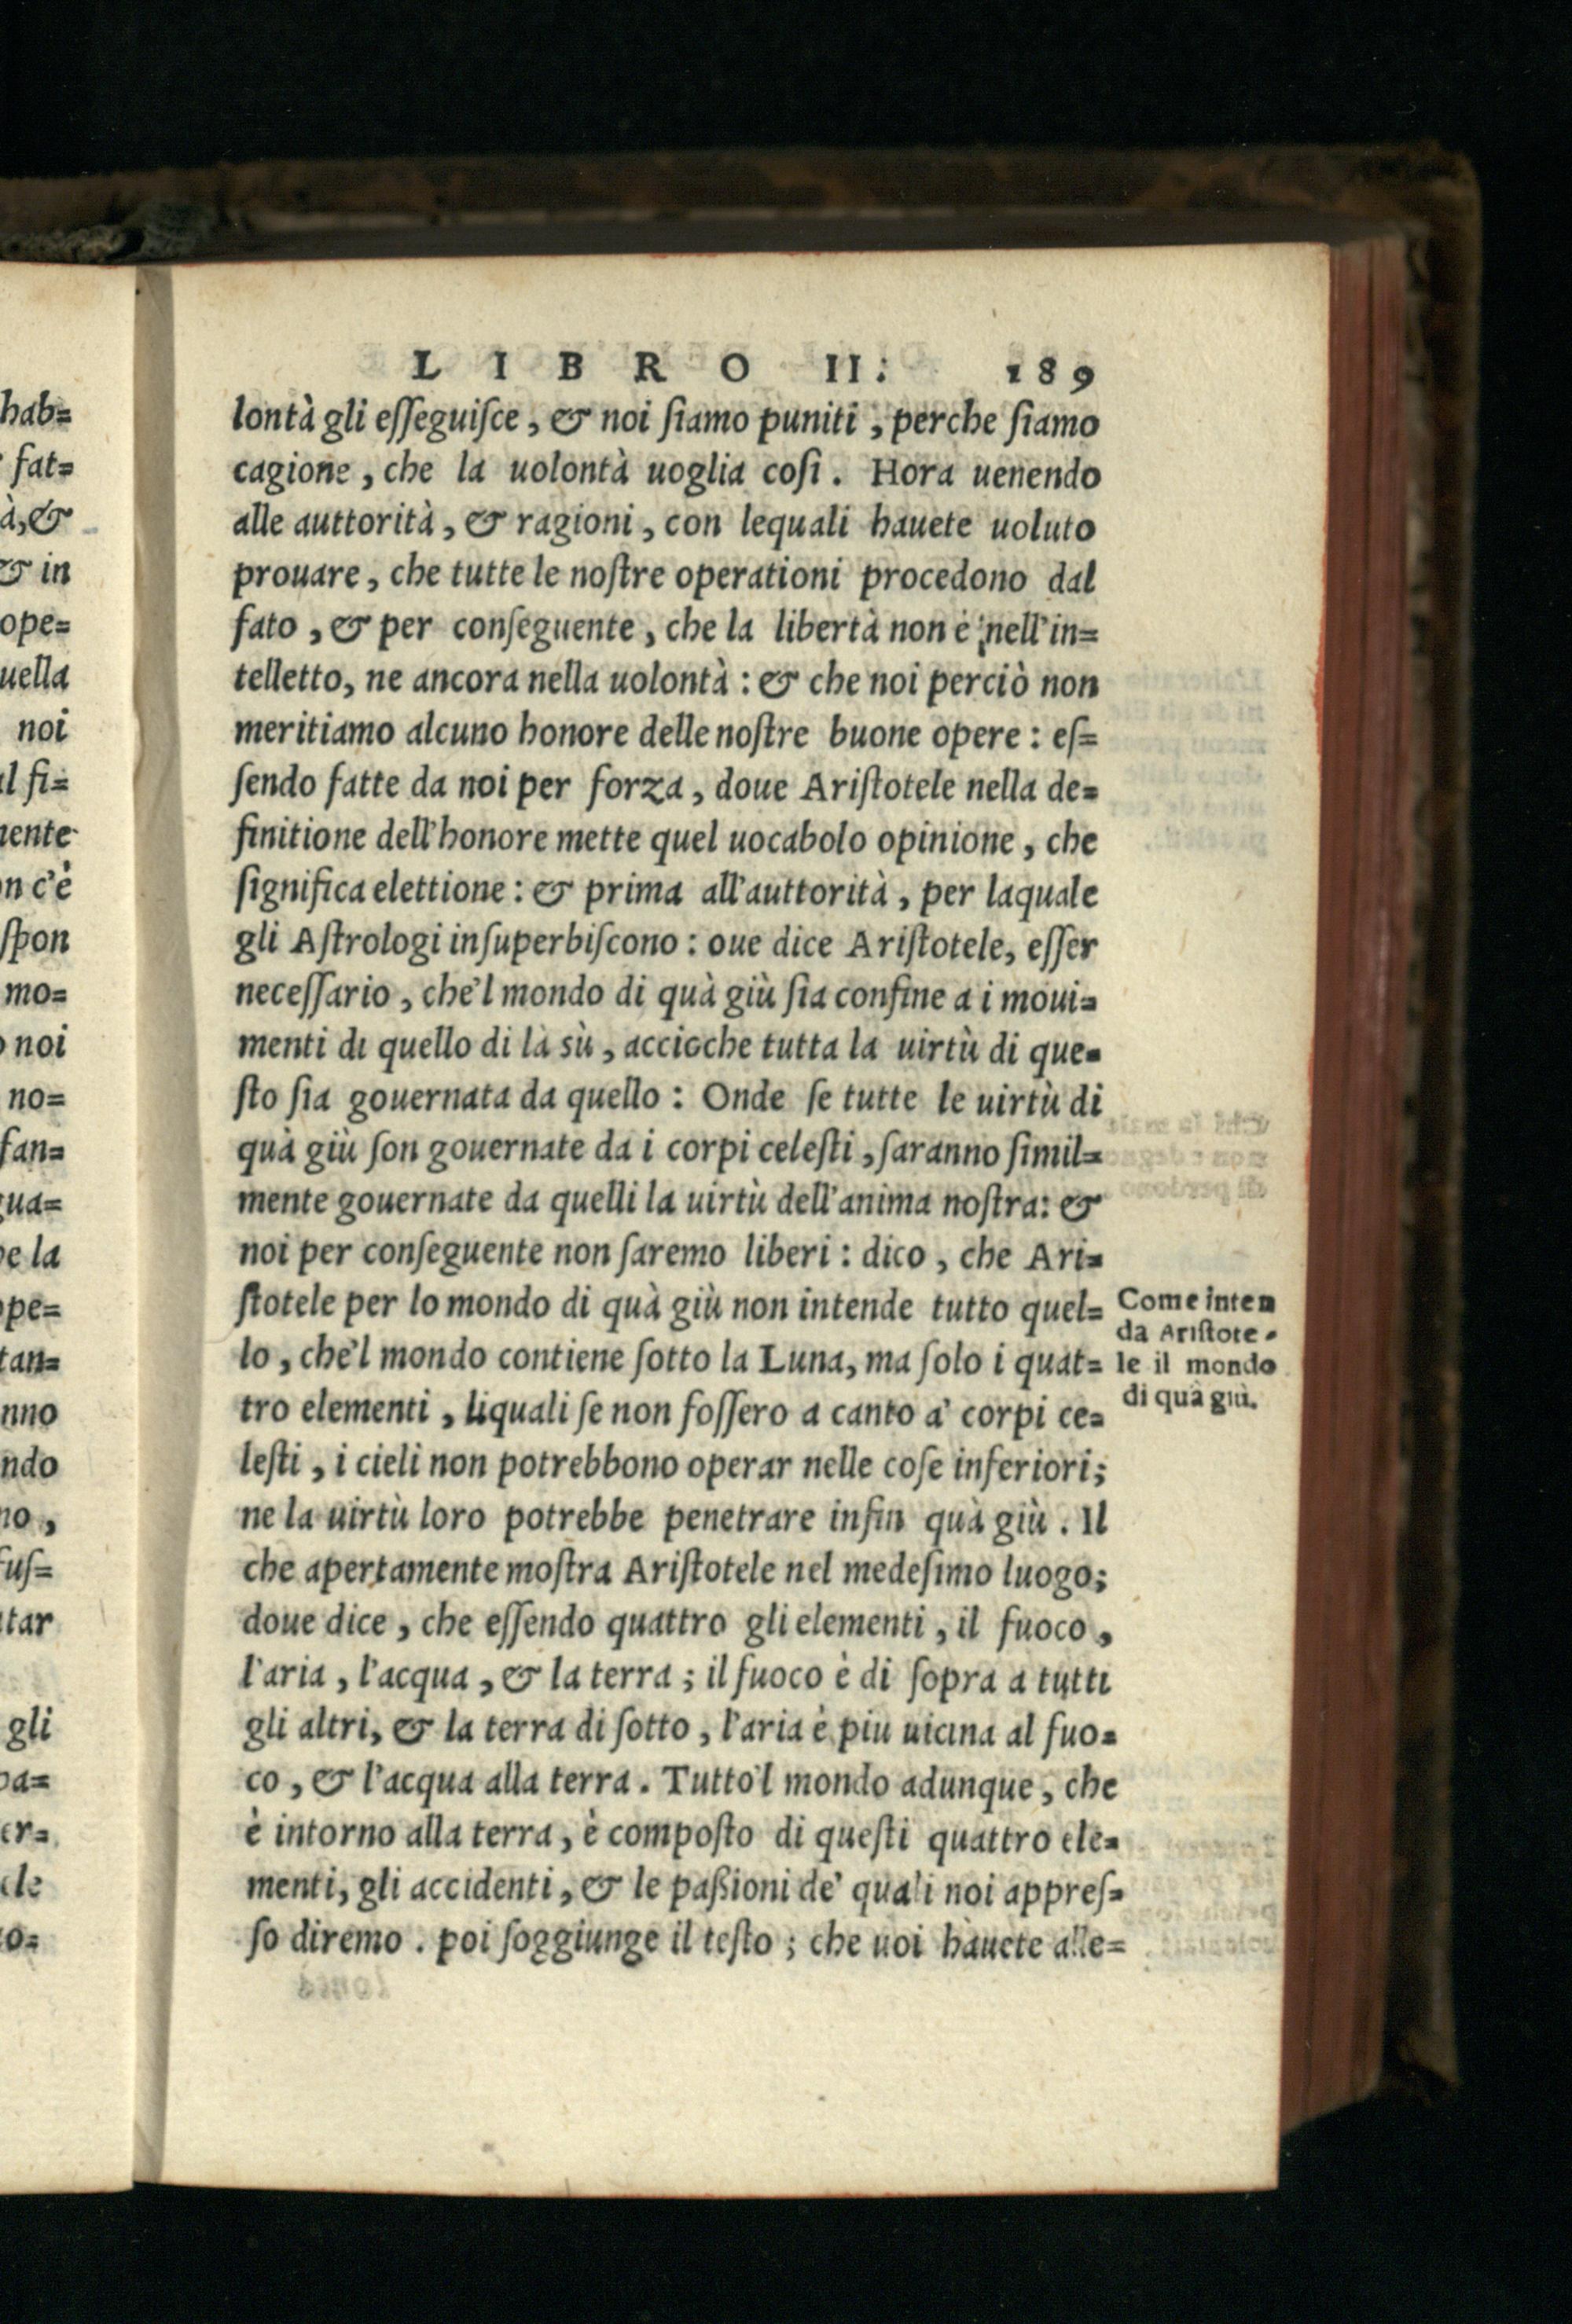 LIBRO II. 189
lontà gli eſſeguiſce, & noi ſiamo puniti, perche ſiamo
cagione, che la uolontà uoglia coſi. Hora uenendo
alle auttorità, & ragioni, con lequali hauete uoluto
prouare, che tutte le noſtre operationi procedono dal
fato, & per conſeguente, che la libertà non è nell'in=
telletto, ne ancora nella uolontà: & che noi perciò non
meritiamo alcuno honore delle noſtre buone opere: eſ=
ſendo fatte da noi per forza, doue Ariſtotele nella de=
finitione dell'honore mette quel uocabolo opinione, che
ſignifica elettione: & prima all'auttorità, per laquale
gli Aſtrologi inſuperbiſcono: oue dice Ariſtotele, eſſer
neceſſario, che'l mondo di quà giù ſia confine a i moui=
menti di quello di là sù, accioche tutta la uirtù di que=
ſto ſia gouernata da quello: Onde ſe tutte le uirtù di
quà giù ſon gouernate da i corpi celeſti, ſaranno ſimil=
mente gouernate da quelli la uirtù dell'anima noſtra: &
noi per conſeguente non ſaremo liberi: dico, che Ari=
ſtotele per lo mondo di quà giù non intende tutto quel=
lo, che'l mondo contiene ſotto la Luna, ma ſolo i quat=
tro elementi, liquali ſe non foſſero a canto a' corpi ce=
leſti, i cieli non potrebbono operar nelle coſe inferiori;
ne la uirtù loro potrebbe penetrare infin quà giù. Il
che apertamente moſtra Ariſtotele nel medeſimo luogo;
doue dice, che eſſendo quattro gli elementi, il fuoco,
l'aria, l'acqua, & la terra; il fuoco è di ſopra a tutti
gli altri, & la terra di ſotto, l'aria è piu uicina al fuo=
co, & l'acqua alla terra. Tutto'l mondo adunque, che
è intorno alla terra, è compoſto di queſti quattro ele=
menti, gli accidenti, & le paßioni de' quali noi appreſ=
ſo diremo. poi ſoggiunge il teſto; che uoi hauete alle=
Come inten
da Ariſtote=
le il mondo
di quà giù.
hab=
fat=
à, &
& in
ope=
uella
noi
l fi=
mente
n c'è
ſpon
mo=
noi
no=
fan=
gua=
e la
pe=
tan=
nno
ndo
no,
fuſ=
tar
gli
pa=
er=
ele
o=